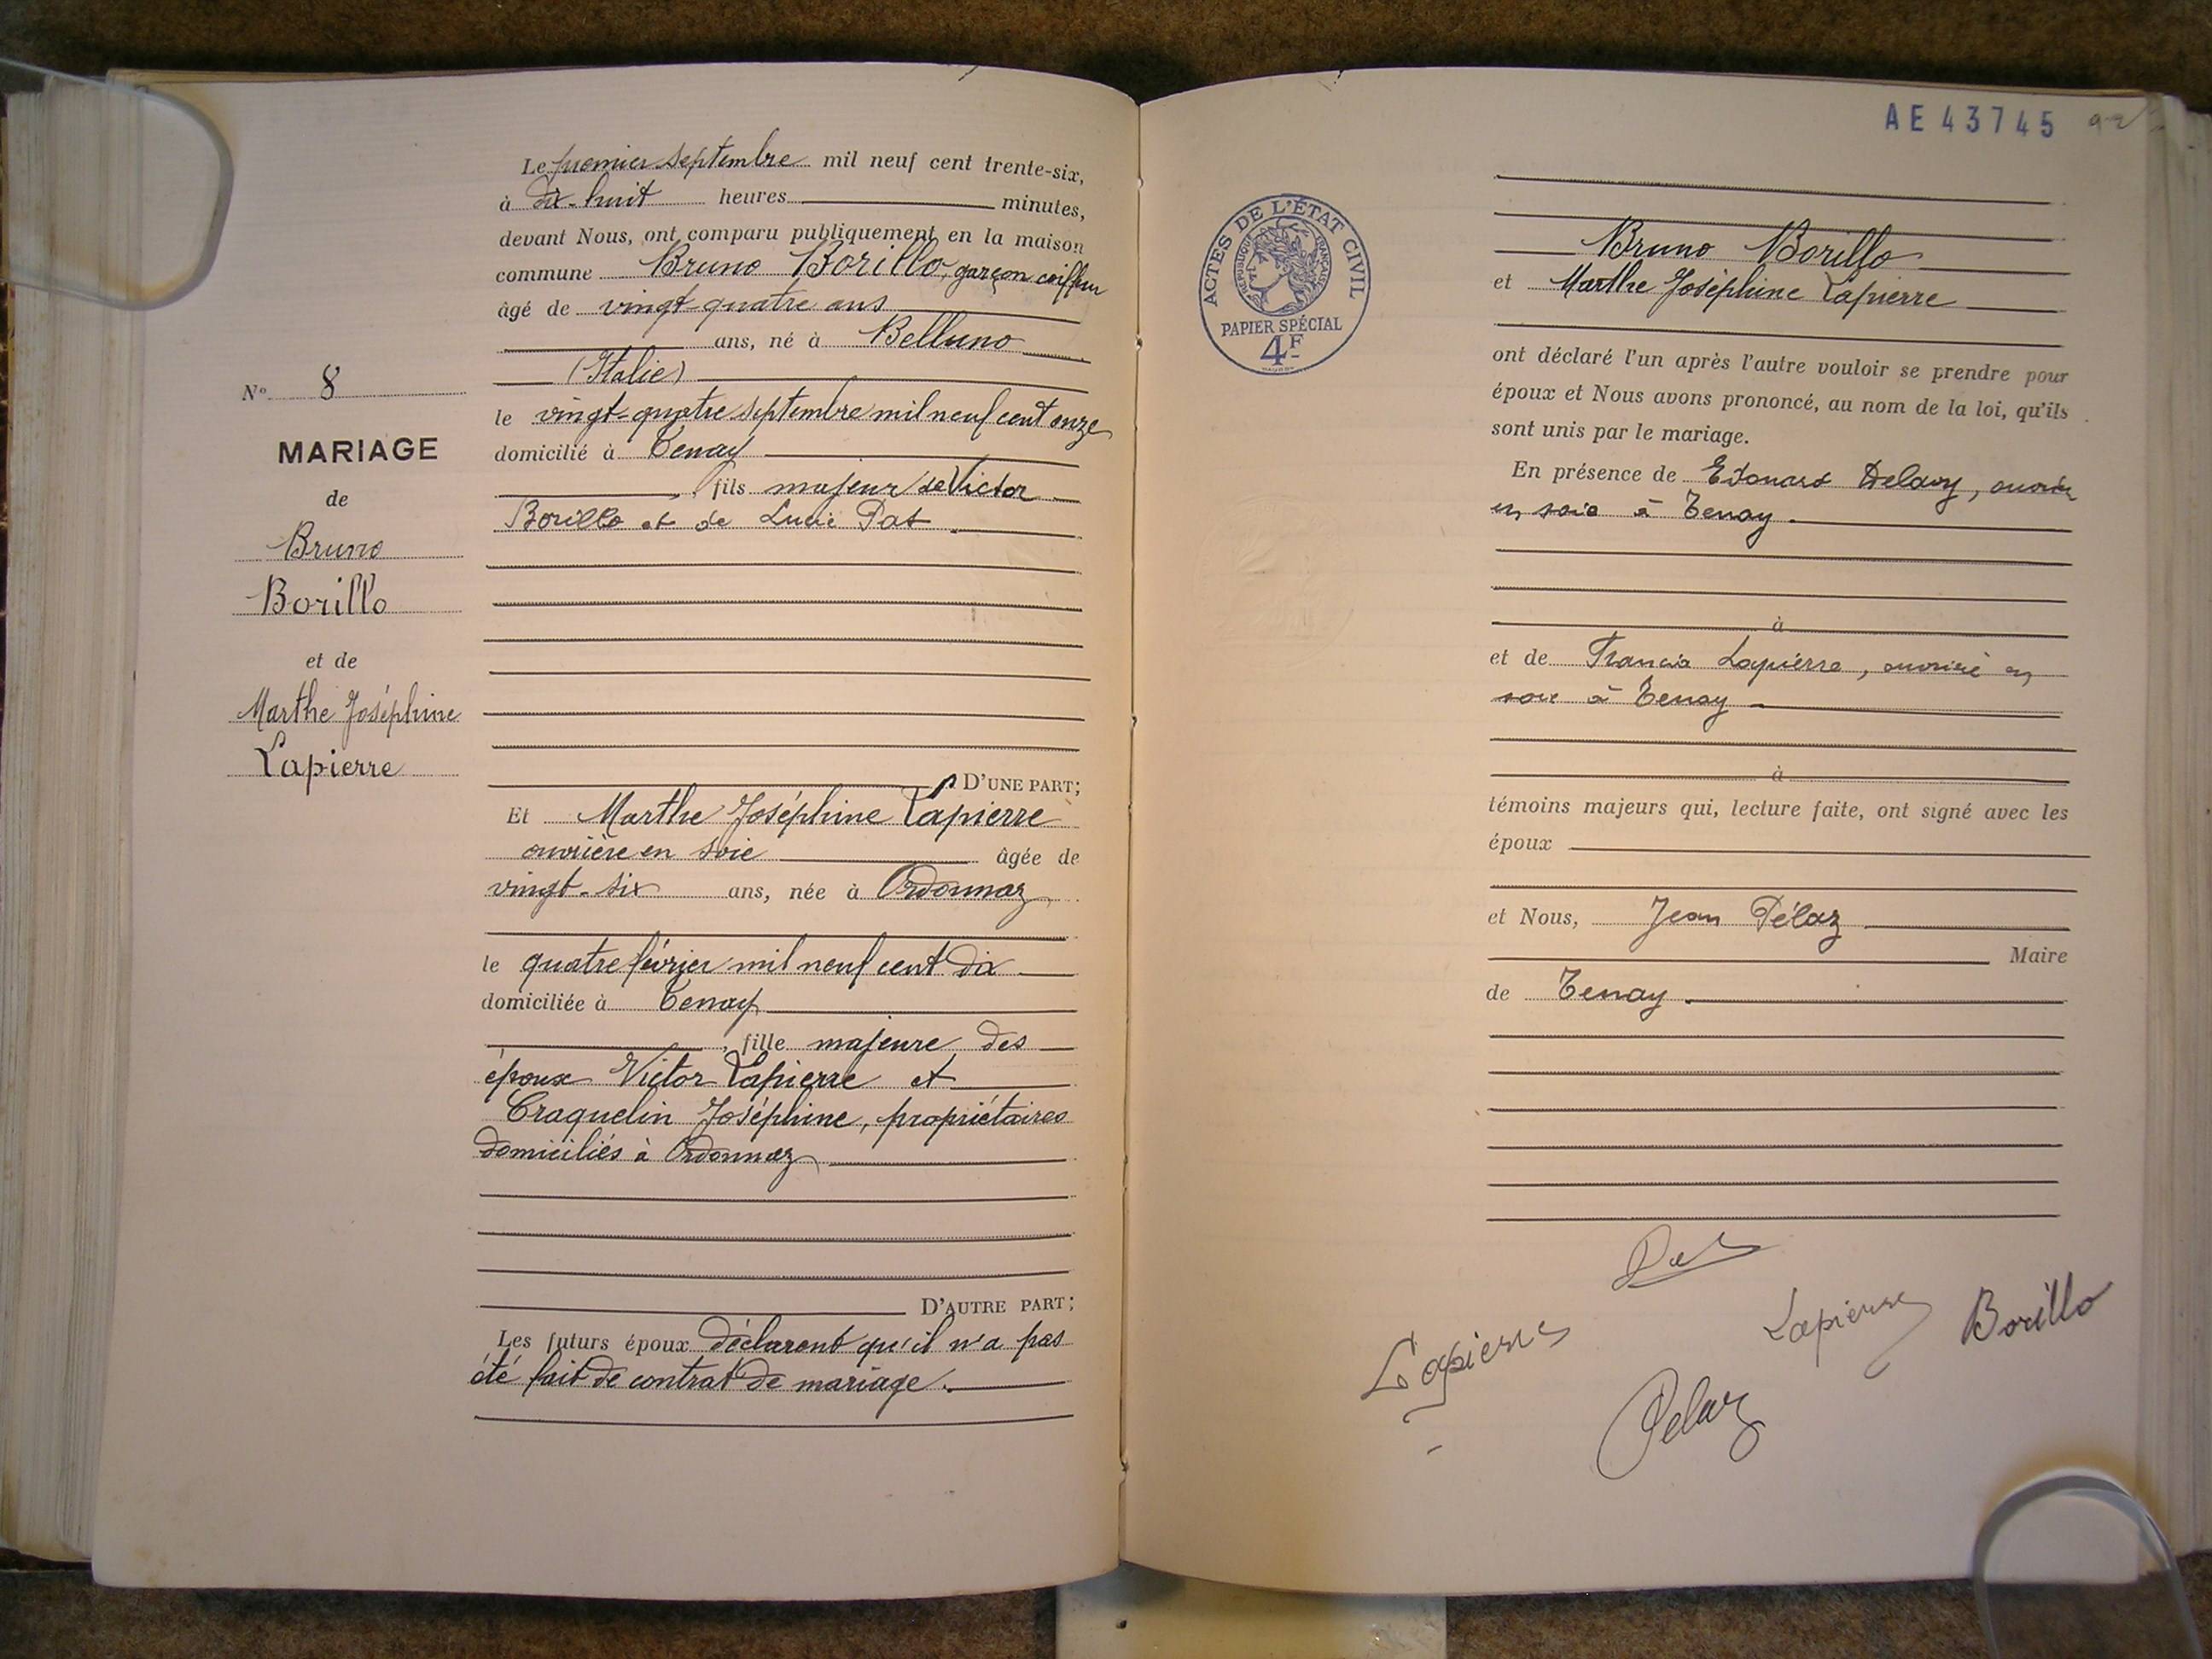 Le premier septembre mil neuf cent trente-six,
à dix-huit heures minutes,
devant Nous, ont comparu publiquement en la maison
commune Bruno Borillo, garçon coiffeur
âgé de vingt-quatre ans
ans, né à Belluno
(Italie)
le vingt-quatre septembre mil neuf cent onze
domicilié à Tenay
, fils majeur de Victor
Borillo et de Lucie Pat.
D'UNE PART;
Et Marthe Joséphine Lapierre
ouvrière en soie âgée de
vingt-six ans, née à Ordonnaz
le quatre février mil neuf cent dix
domiciliée à Tenay
, fille majeure des
époux Victor Lapierre et
Craquelin Joséphine, propriétaires
domiciliés à Ordonnaz
D'AUTRE PART;
Les futurs époux déclarent qu'il n'a pas
été fait de contrat de mariage.
N° 8
MARIAGE
de
Bruno
Borillo
et de
Marthe Joséphine
Lapierre
AE 43745
ACTES DE L'ÉTAT CIVIL
RÉPUBLIQUE FRANÇAISE
PAPIER SPÉCIAL
4F
Bruno Borillo
et Marthe Joséphine Lapierre
ont déclaré l'un après l'autre vouloir se prendre pour
époux et Nous avons prononcé, au nom de la loi, qu'ils
sont unis par le mariage.
En présence de Edouard, ouvrier
en soie à Tenay.
à
et de Francia Lapierre, ouvrière en
soie à Tenay
à
témoins majeurs qui, lecture faite, ont signé avec les
époux
et Nous, Jean Pélaz
Maire
de Tenay.
Lapierre
Lapierre
Borillo
Pelaz